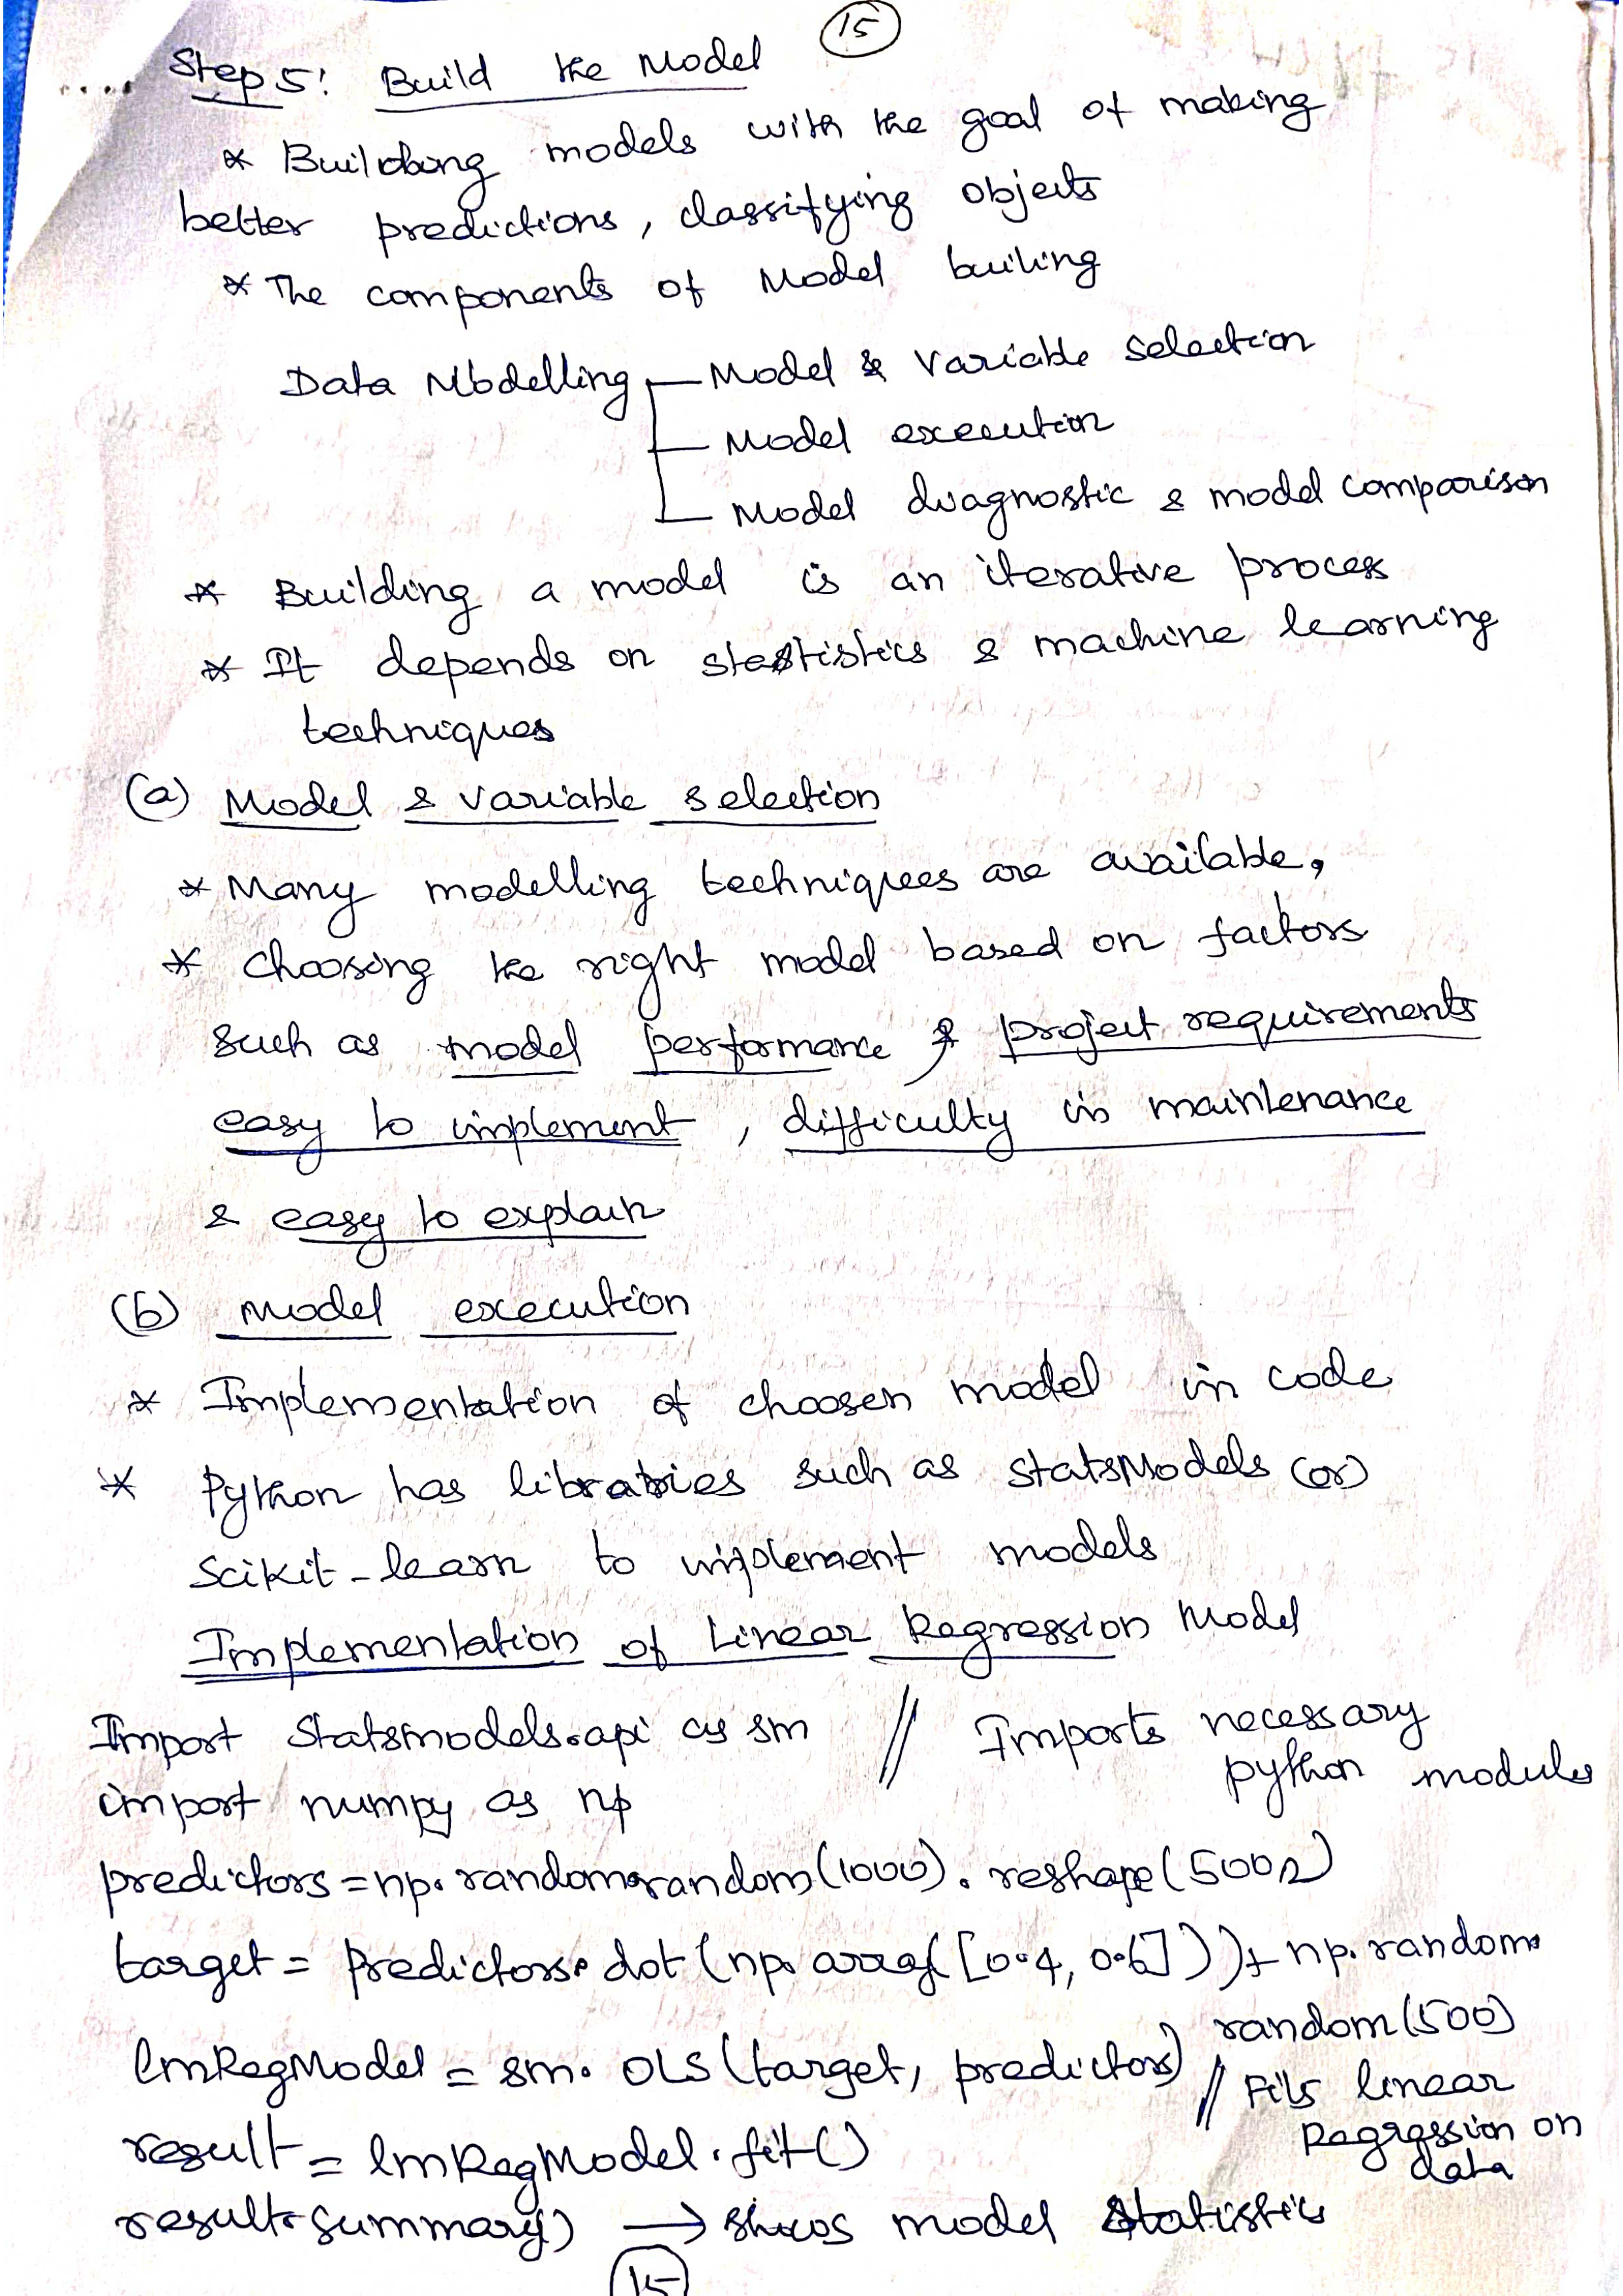 15
Step 5: Build the Model
* Building models with the goal of making
better predictions, classifying objects
* The components of Model builing
Data Modelling Model & Variable selection
Model execution
Model diagnostic & model comparison
* Building a model is an iterative process
* It depends on stastistics & machine learning
techniques
(a) Model & variable selection
* Many modelling techniques are available,
* choosing the right model based on factors
such as model performance & project requirements
easy to implement, difficulty in maintenance
& easy to explain
(b) Model execution
* Implementation of choosen model in code
* Python has libraries such as StatsModels (or)
Scikit-learn to implement models
Implementation of Linear Regression Model
Import Statsmodels.api as sm // Imports necessary
python modules
import numpy as np
predictors = np.random.random(1000).reshape(500,2)
target = predictors.dot(np.array([0.4, 0.6])) + np.random.
random(500)
lmRegModel = sm.OLS(target, predictors) // Fits linear
Regression on
data
result = lmRegModel.fit()
result.summary() → shows model statistics
15